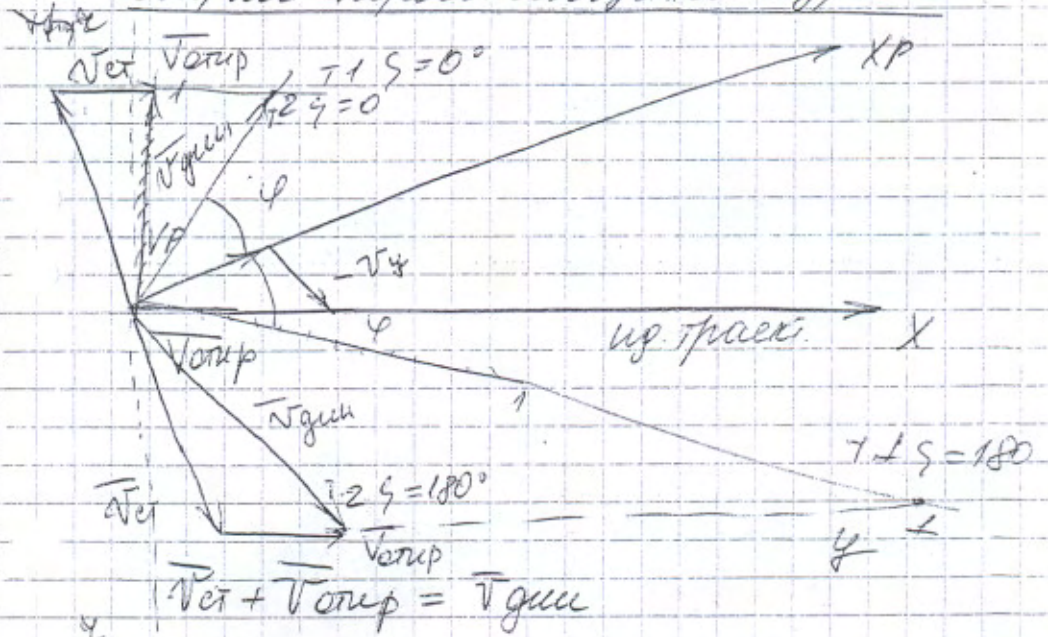 V̄ст V̄отир
1
т1 ξ = 0°
т2 ξ = 0
XP
V̄дин
φ
VP
-Vy
φ
ид. траект.
X
V̄отир
1
V̄дин
т1 ξ = 180
V̄ст
т2 ξ = 180°
1
V̄отир
y
V̄ст + V̄отир = V̄дин